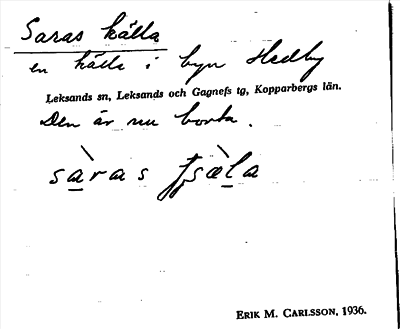 Saras källa
en källa i byn Hedby
Leksands sn, Leksands och Gagnefs tg, Kopparbergs län.
Den är nu borta.
sàras fsæ̀la
ERIK M. CARLSSON, 1936.